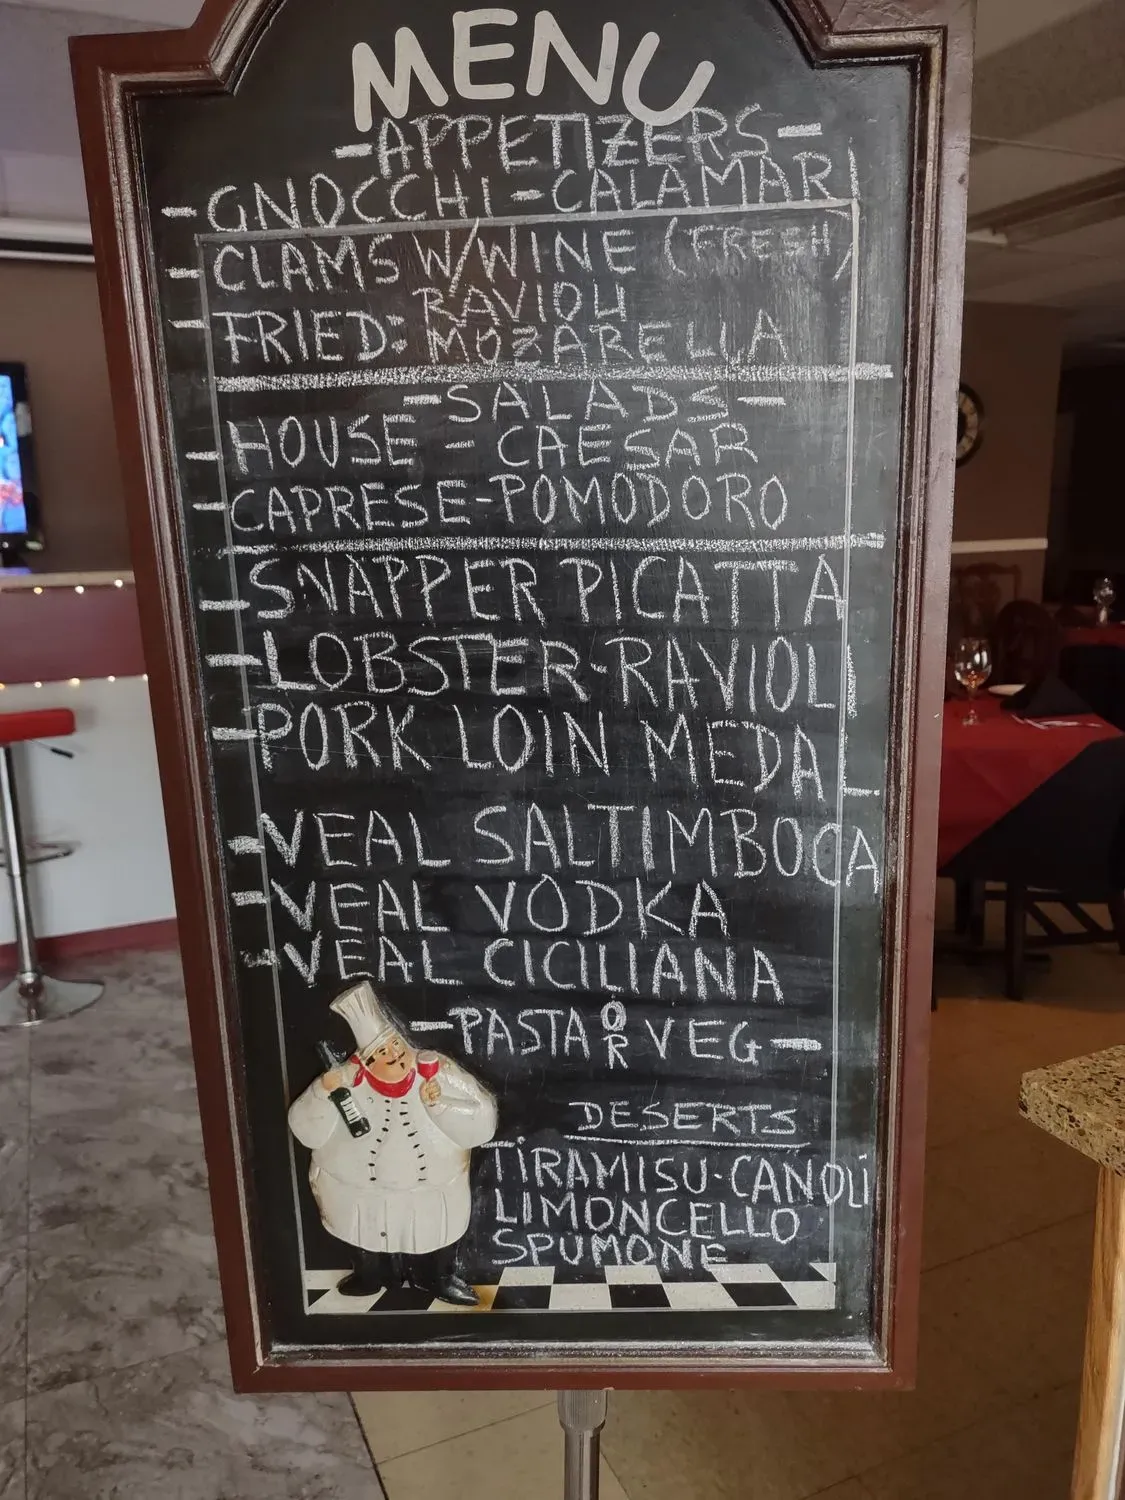 MENU
-APPETIZERS-
-GNOCCHI-CALAMARI
-CLAMS W/WINE (FRESH)
RAVIOLI
-FRIED: MOZARELLA
-SALADS-
-HOUSE - CAESAR
-CAPRESE-POMODORO
-SNAPPER PICATTA
-LOBSTER-RAVIOLI
-PORK LOIN MEDAL
-VEAL SALTIMBOCA
-VEAL VODKA
-VEAL CICILIANA
-PASTA OR VEG-
DESERTS
TIRAMISU-CANOLI
LIMONCELLO
SPUMONE